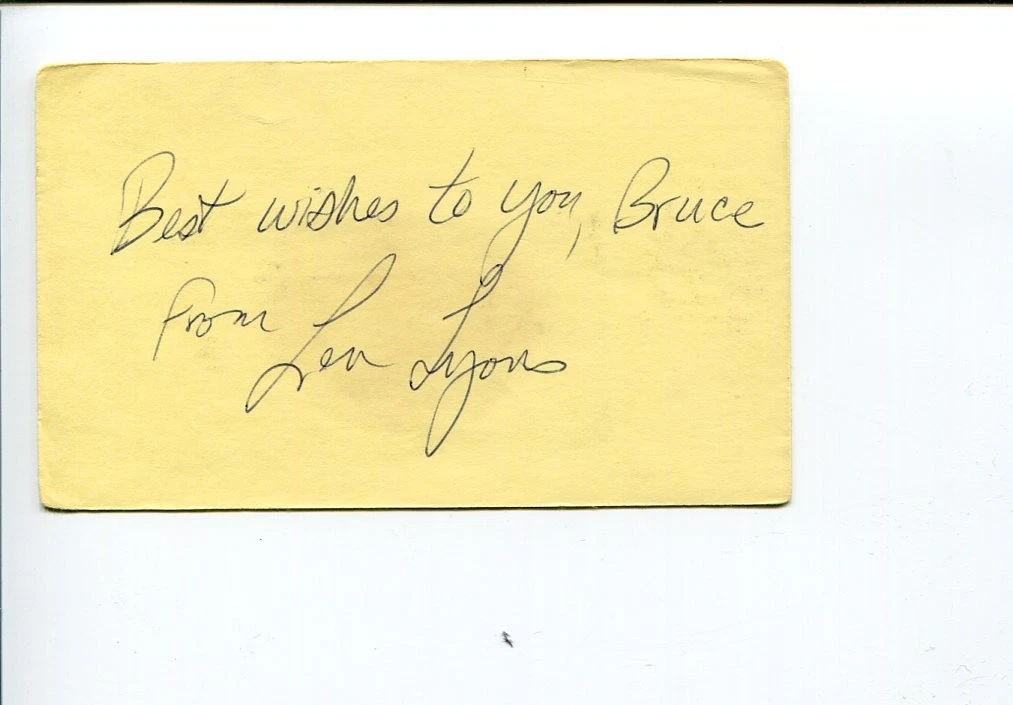 Best wishes to you, Bruce
From Len Lyons